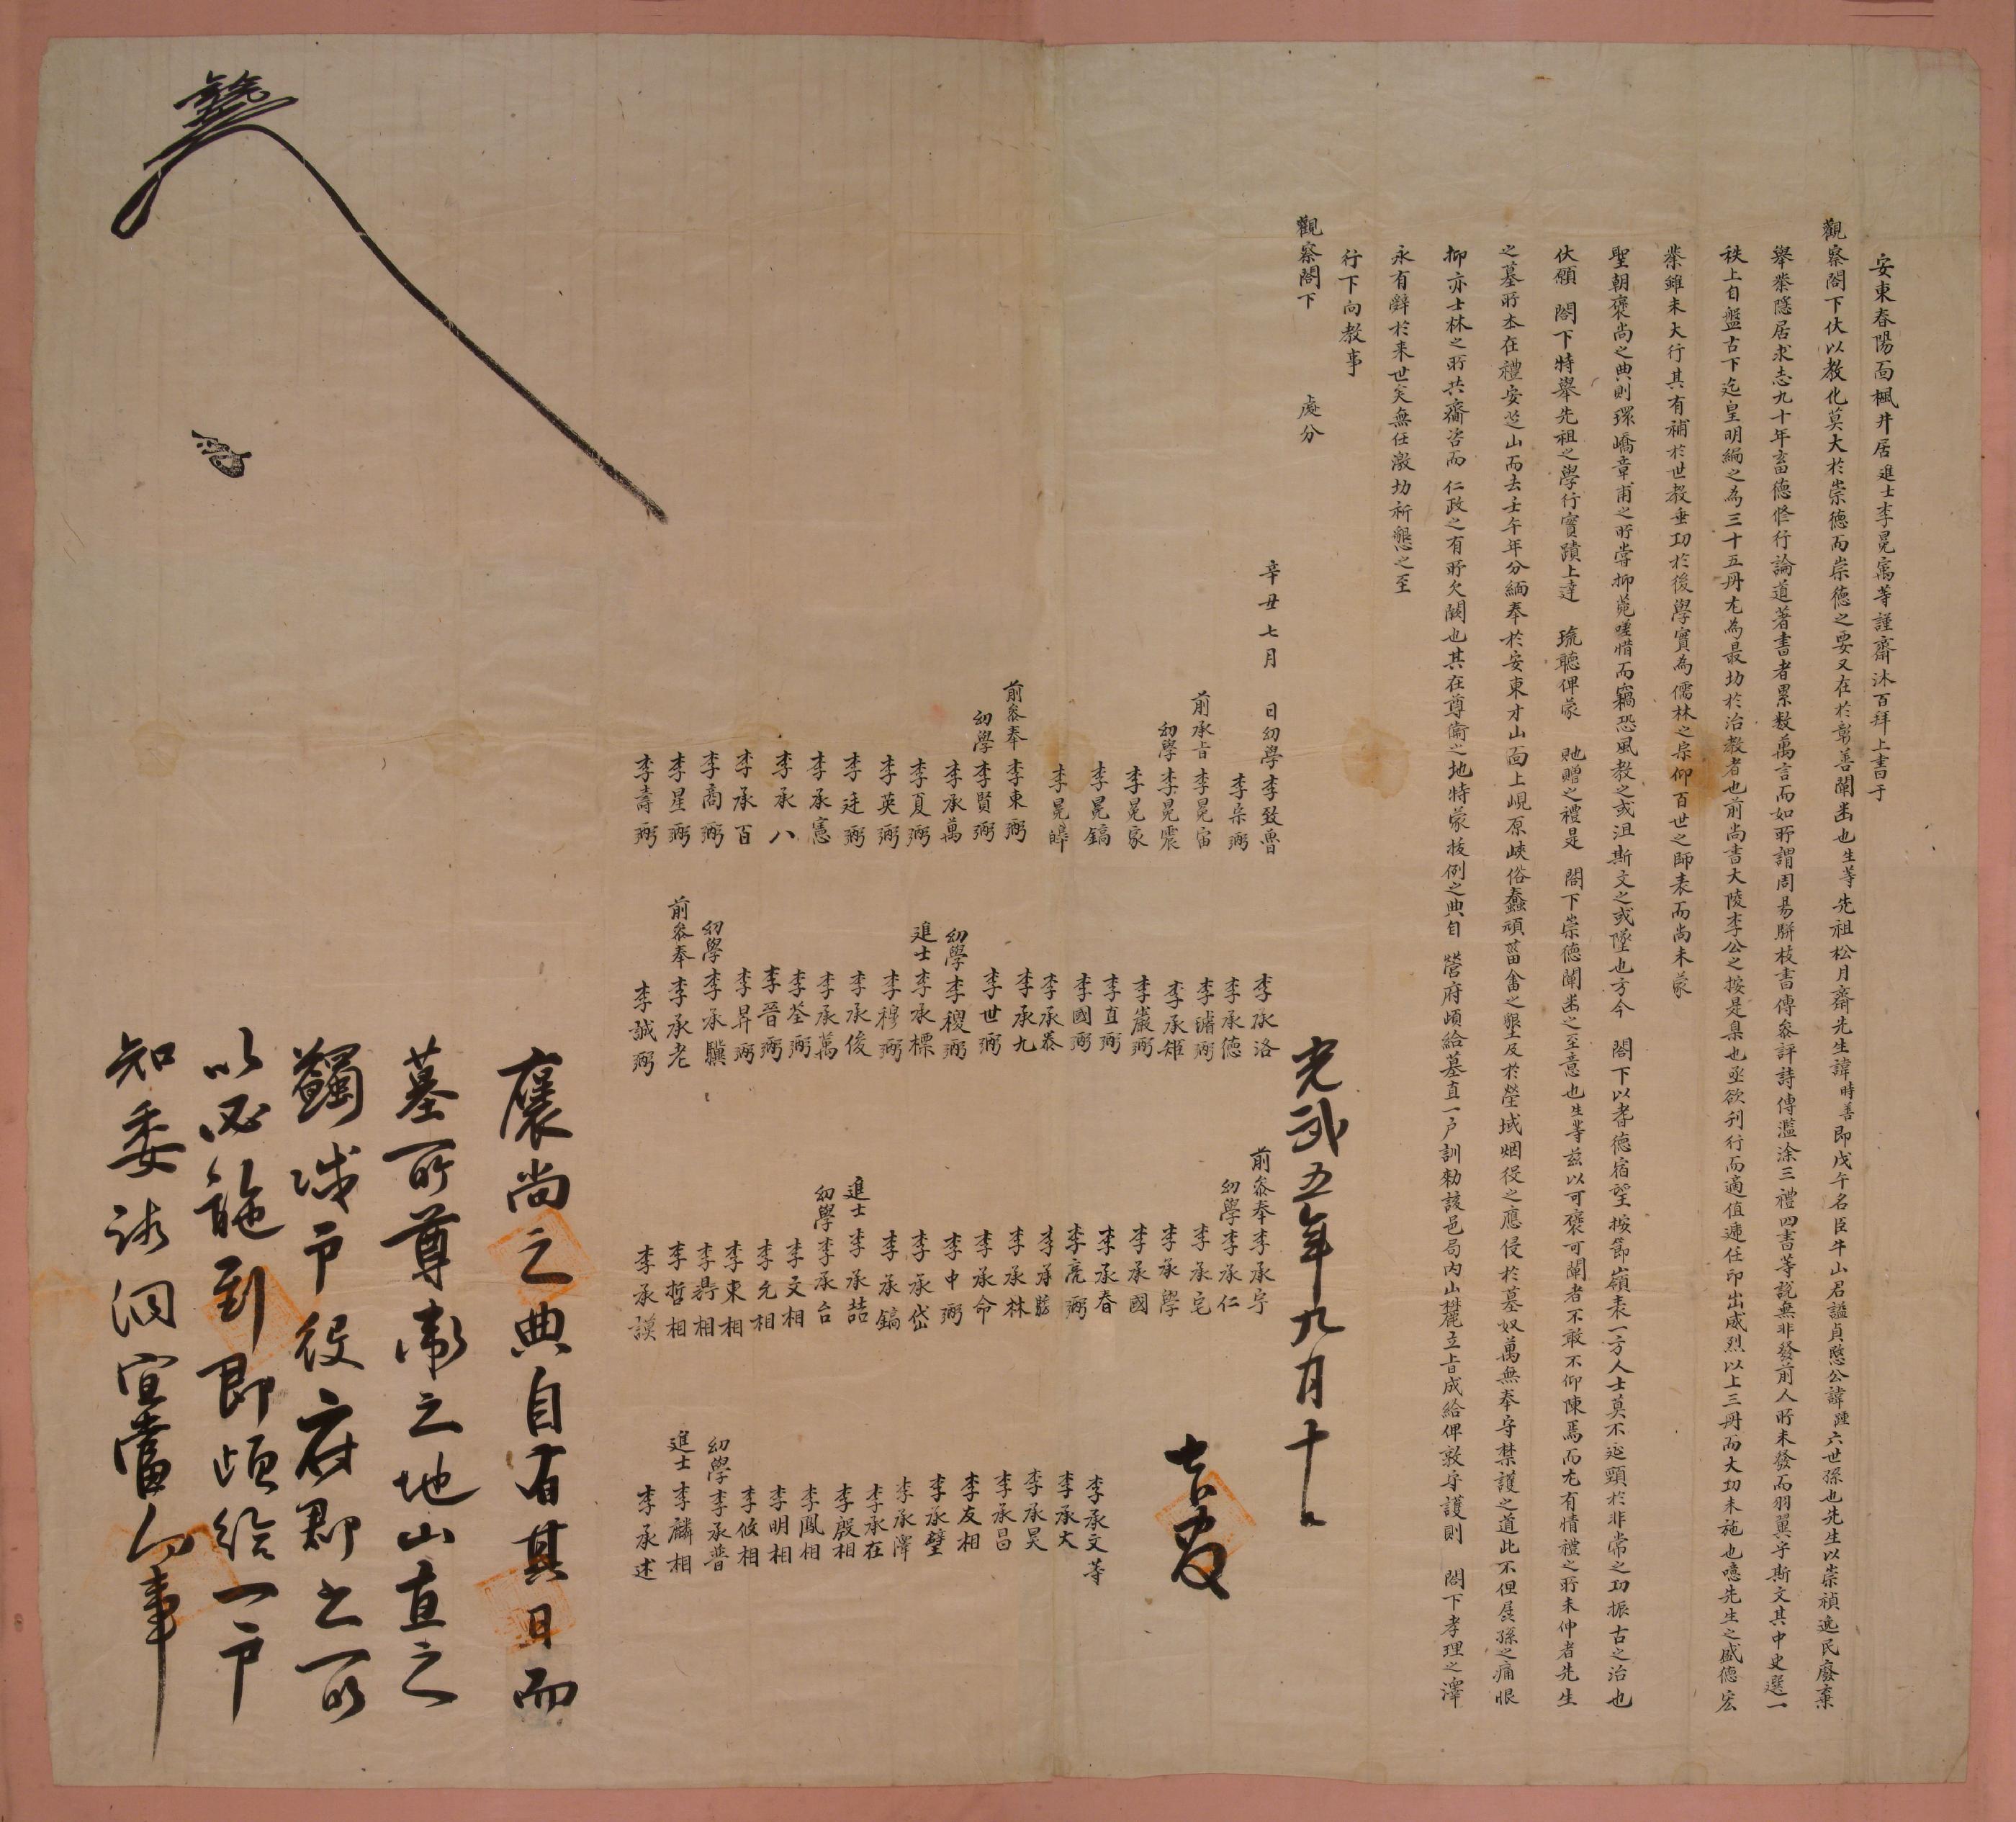 安東春陽面楓井居進士李晃㝢等謹齋沐百拜上書于
觀察閤下伏以敎化莫大於崇德而崇德之要又在於彰善闡幽也生等先祖松月齋先生諱時善卽戊午名臣牛山君謚貞愍公諱踵六世孫也先生以崇禎逸民廢棄
擧業隱居求志九十年畜德修行論道著書者累數萬言而如所謂周易騈枝書傳叅評詩傳濫涂三禮四書等說無非發前人所未發而羽翼乎斯文其中史選一
秩上自盤古下迄皇明編之爲三十五冊尤爲最功於治敎者也前尙書大陵李公之按是臬也亟欲刊行而適値遞任印出咸烈以上三冊而大功未施也噫先生之盛德宏
業雖未大行其有補於世敎垂功於後學實爲儒林之宗仰百世之師表而尙未蒙
聖朝褒尙之典則環嶠章甫之所嘗抑菀嗟惜而竊恐風敎之或沮斯文之或墜也方今 閤下以耆德宿望按節嶺表一方人士莫不延頸於非常之功振古之治也
伏願 閤下特擧先祖之學行實蹟上達 琉聽俾蒙 貤贈之禮是 閤下崇德闡幽之至意也生等玆以可褒可闡者不敢不仰陳焉而尤有情禮之所未伸者先生
之墓所本在禮安芝山而去壬午年分緬奉於安東才山面上峴原峽俗蠢頑菑畬之墾及於塋域烟役之應侵於墓奴萬無奉守禁護之道此不但孱孫之痛恨
抑亦士林之所共齎咨而 仁政之有所欠闕也其在尊衛之地特蒙拔例之典自 營府頉給墓直一戶訓勅該邑局內山麓立旨成給俾敦守護則 閤下孝理之澤
永有辭於來世矣無任激切祈懇之至
行下向敎事
觀察閤下 處分
辛丑七月 日幼學李致魯
李杲弼
前承旨李晃宙
幼學李晃震
李晃家
李晃鎬
李晃皥
前叅奉李東弼
幼學李賢弼
李承萬
李夏弼
李英弼
李廷弼
李承憲
李承八
李承百
李商弼
李星弼
李壽弼
李承洛
李承德
李璿弼
李承矩
李巖弼
李直弼
李國弼
李承泰
李承九
李世弼
幼學李稷弼
進士李承標
李穆弼
李承俊
李承萬
李荃弼
李晉弼
李昇弼
幼學李承驥
前叅奉李承老
李誠弼
前叅奉李承宇
幼學李承仁
李承宅
李承學
李承國
李承春
李亮弼
李承林
李承命
李中弼
李承岱
李承鎬
進士李承喆
幼學李承台
李文相
李元相
李東相
李鼎相
李哲相
李承謨
李承文等
李承大
李承昊
李承昌
李友相
李承璧
李承澤
李承在
李殷相
李鳳相
李明相
李攸相
幼學李承普
進士李麟相
李承述
光武五年九月十日
褒尙之典自有其日而
墓所尊衛之地山直之
蠲減戶役府郡之所
以必施到卽頉給一戶
知委該洞宜當向事